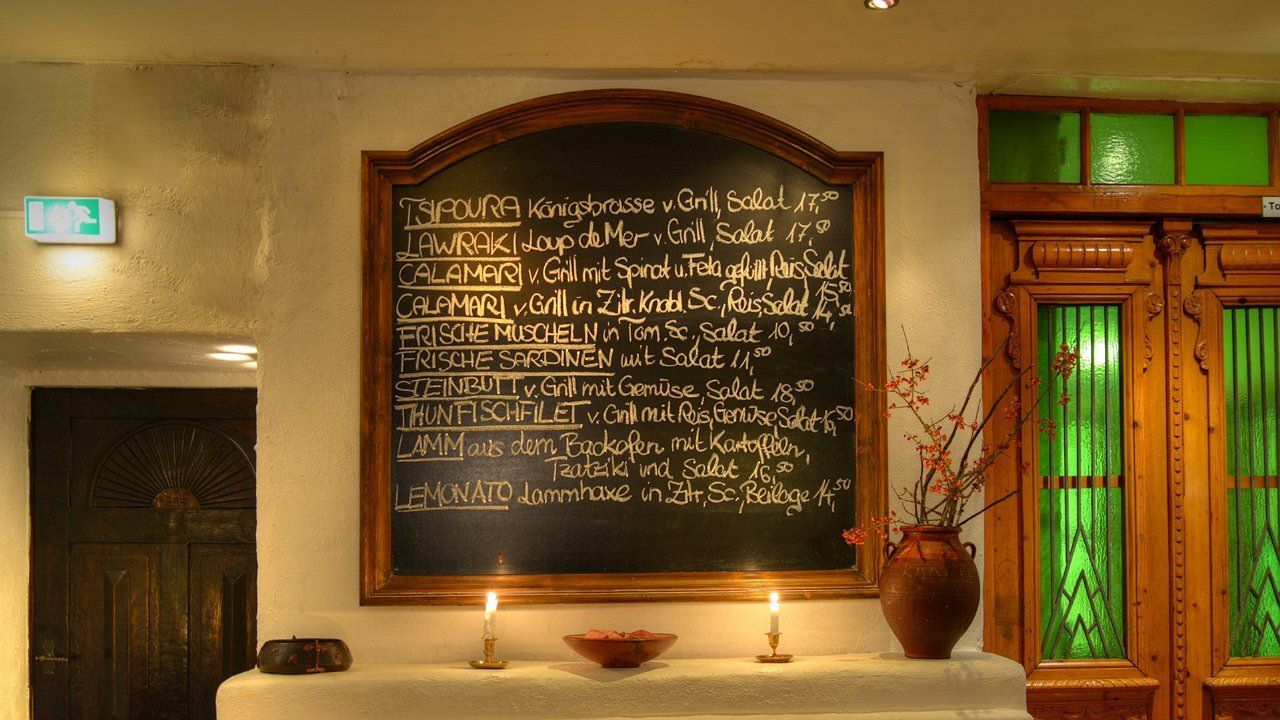 TSIPOURA Königsbrasse v. Grill, Salat 17,50
LAWRAKI Loup de Mer v. Grill, Salat 17,50
CALAMARI v. Grill mit Spinat u. Feta gefüllt, Reis, Salat
15,50
CALAMARI v. Grill in Zitr. Knobl. Sc., Reis, Salat 14,50
FRISCHE MUSCHELN in Tom. Sc., Salat 10,50
FRISCHE SARDINEN mit Salat 11,50
STEINBUTT v. Grill mit Gemüse, Salat 18,50
THUNFISCHFILET v. Grill mit Reis, Gemüse, Salat 16,50
LAMM aus dem Backofen mit Kartoffeln,
Tzatziki und Salat 16,50
LEMONATO Lammhaxe in Zitr. Sc., Beilage 14,50